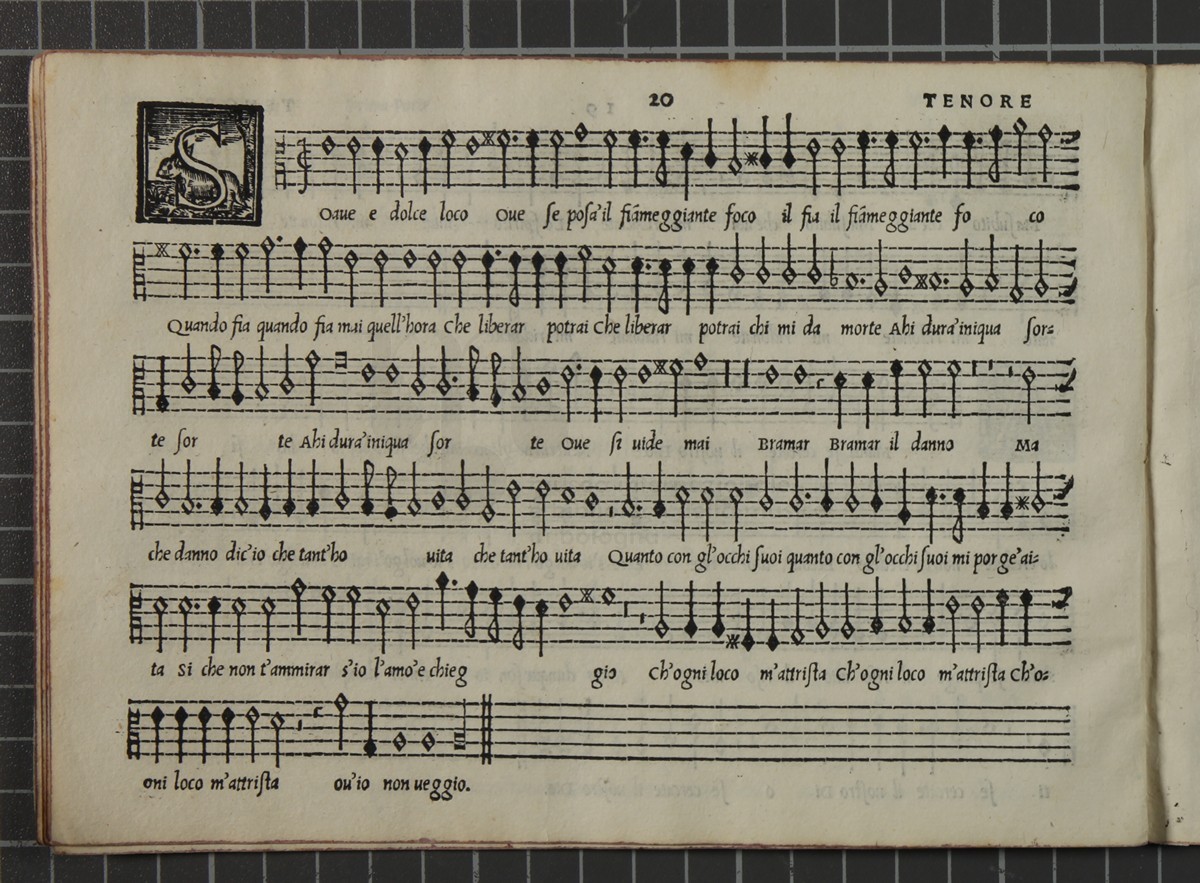 20 TENORE
SOaue e dolce loco Oue se posa'il fiāmeggiante foco il fia il fiāmeggiante fo co
Quando fia quando fia mai quell'hora Che liberar potrai Che liberar potrai chi mi da morte Ahi dura'iniqua sor=
te sor te Ahi dura'iniqua sor te Oue si uide mai Bramar Bramar il danno Ma
che danno dic'io che tant'ho uita che tant'ho uita Quanto con gl'occhi suoi quanto con gl'occhi suoi mi porge'ai=
ta Si che non t'ammirar s'io l'amo'e chieg gio Ch'ogni loco m'attrista Ch'ogni loco m'attrista Ch'o=
gni loco m'attrista ou'io non ueggio.